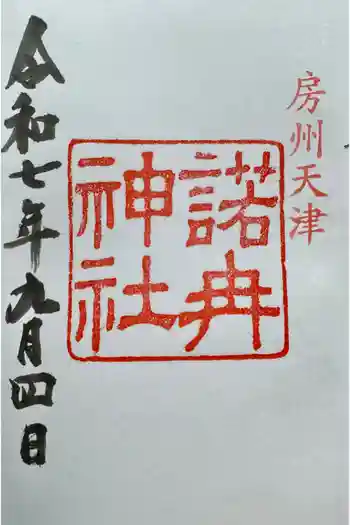 房州天津
諾冉
神社
令和七年九月四日